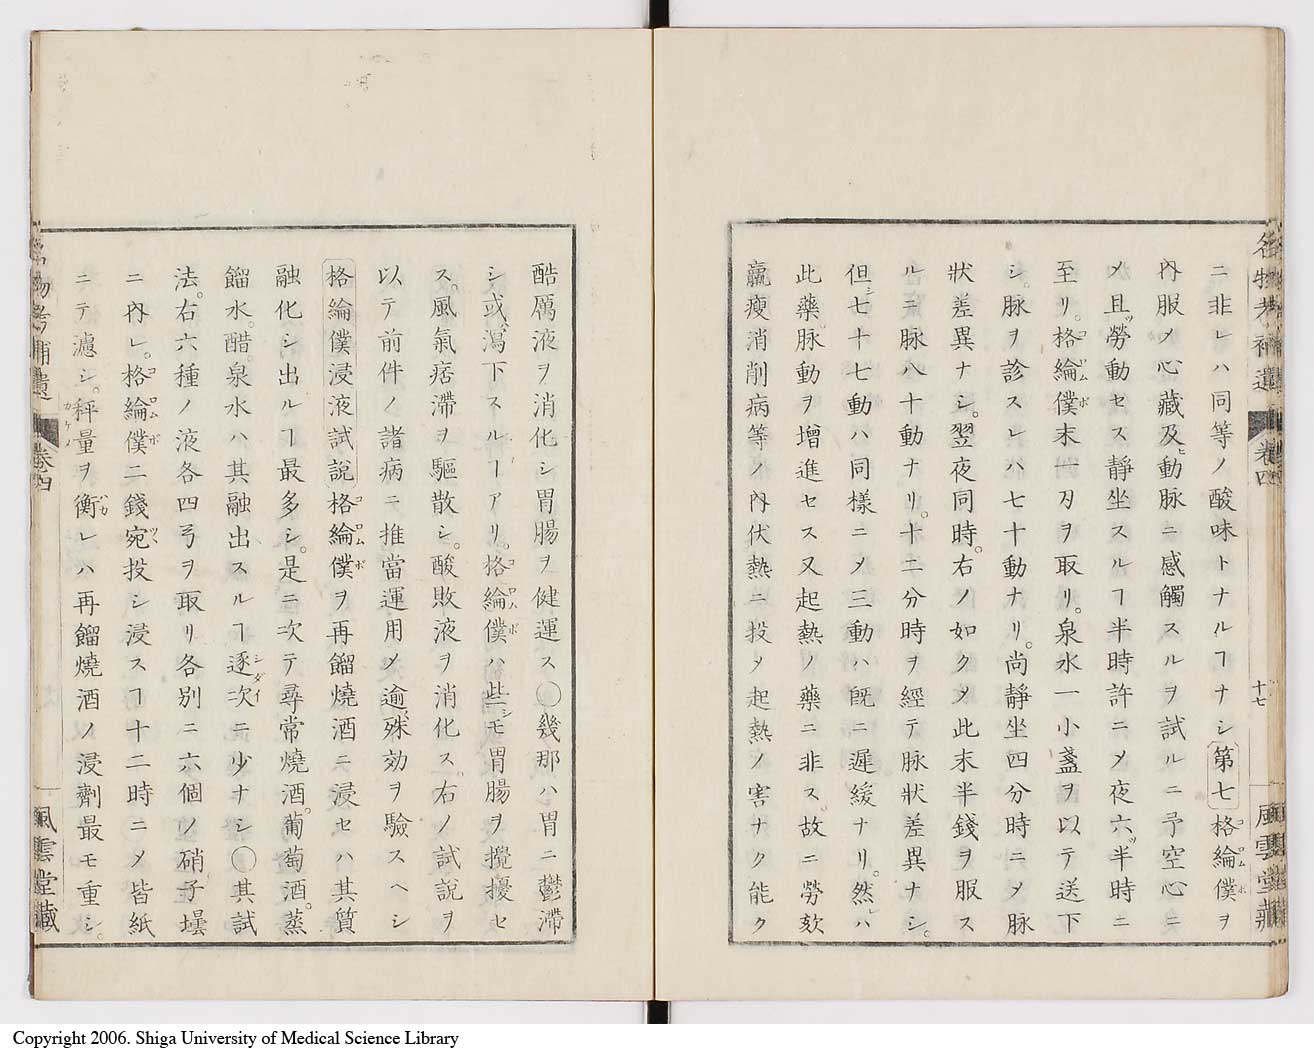 名物考補遺 卷四 十七 風雲堂藏
ニ非レハ同等ノ酸味トナルヿナシ第七格綸僕ヲ
內服メ心藏及ヒ動脉ニ感觸スルヲ試ルニ予空心ニ
メ且ツ勞動セス靜坐スルヿ半時許ニメ夜六ツ半時ニ
至リ。格綸僕末一刄ヲ取リ。泉水一小盞ヲ以テ送下
シ。脉ヲ診スレハ七十動ナリ。尚靜坐四分時ニメ脉
狀差異ナシ。翌夜同時。右ノ如クメ此末半錢ヲ服ス
ルニ脉八十動ナリ。十二分時ヲ經テ脉狀差異ナシ。
但シ七十七動ハ同樣ニメ三動ハ既ニ遲緩ナリ。然レハ
此藥脉動ヲ增進セス又起熱ノ藥ニ非ス。故ニ勞欬
羸瘦消削病等ノ內伏熱ニ投メ起熱ノ害ナク能ク
酷厲液ヲ消化シ胃腸ヲ健運ス〇幾那ハ胃ニ鬱滯
シ或ハ瀉下スルヿアリ。格綸僕ハ些シモ胃腸ヲ攪擾セ
ス。風氣痞滯ヲ驅散シ。酸敗液ヲ消化ス。右ノ試說ヲ
以テ前件ノ諸病ニ推當運用メ逾殊効ヲ驗スヘシ
格綸僕浸液試說格綸僕ヲ再餾燒酒ニ浸セハ其質
融化シ出ルヿ最多シ。是ニ次テ尋常燒酒。葡萄酒。蒸
餾水。醋。泉水ハ其融出スルヿ逐次ニ少ナシ〇其試
法。右六種ノ液各四弓ヲ取リ各別ニ六個ノ硝子壜
ニ內レ。格綸僕二錢宛投シ浸スヿ十二時ニメ皆紙
ニテ濾シ。秤量ヲ衡レハ再餾燒酒ノ浸劑最モ重シ。
名物考補遺 卷四 風雲堂藏
Copyright 2006. Shiga University of Medical Science Library